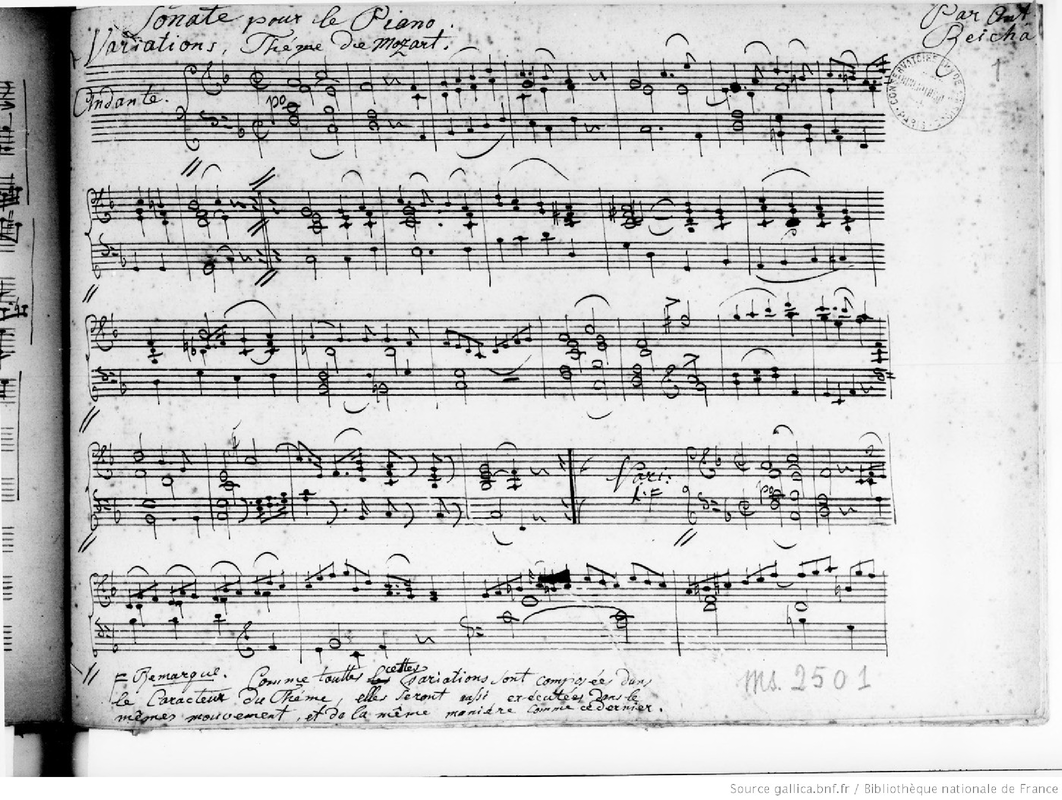 Sonate pour le Piano.
Par Ant
Variations, Thême de Mozart.
Reicha
1
Andante.
po
CONSERVATOIRE DE
PARIS
Vari:
1.=
po
= Remarque. Comme touttes cettes variations sont composées dans
le Caracteur du Thême, elles seront ausi exécutées dans le
mêmes mouvement, et de la même manière comme ce dernier.
Ms. 2501
Source gallica.bnf.fr / Bibliothèque nationale de France